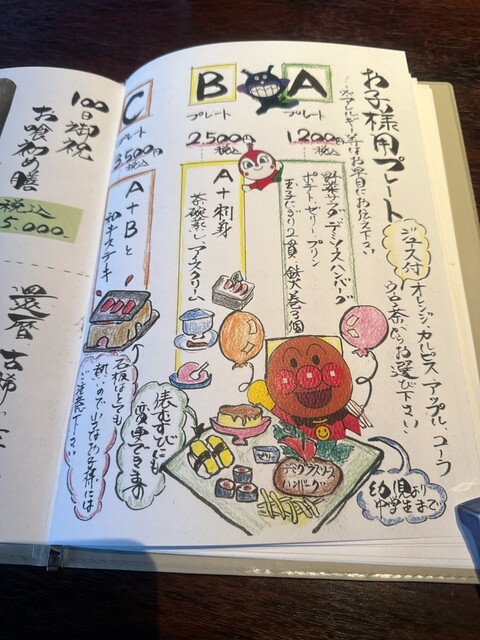 お子様用プレート
※アレルギー等はお早目にお伝え下さい
ジュース付
オレンジ、カルピス、アップル、コーラ
ウーロン茶からお選び下さい
A
プレート
1,200円
税込
野菜サラダ、デミソースハンバーグ
ポテト、ゼリー、プリン
玉子にぎり2貫、鉄火巻3個
B
プレート
2500円
税込
A+刺身
茶碗蒸し アイスクリーム
C
プレート
3,500円
税込
A+Bと
和牛ステーキ
石板はとても
熱いので小さなお子様には
ご注意下さい
俵むすびにも
変更できます
デミグラスソース
ハンバーグ
幼児より
中学生まで
100日御祝
お喰初め膳
税込
5,000
還暦 古